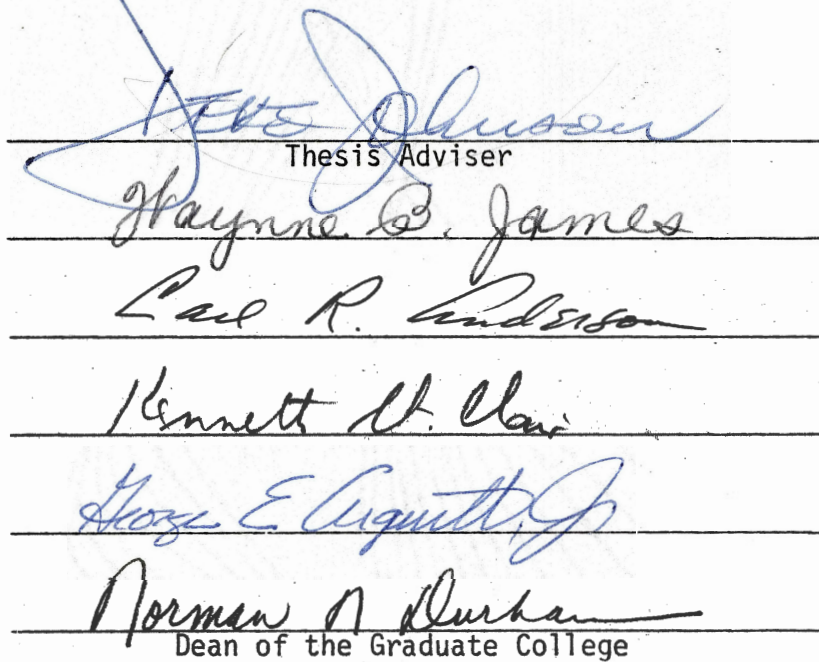 Johnson
Thesis Adviser
Waynne B. James
Carl R. Anderson
Kenneth St. Clair
George E. Arquitt, Jr
Norman N Durham
Dean of the Graduate College